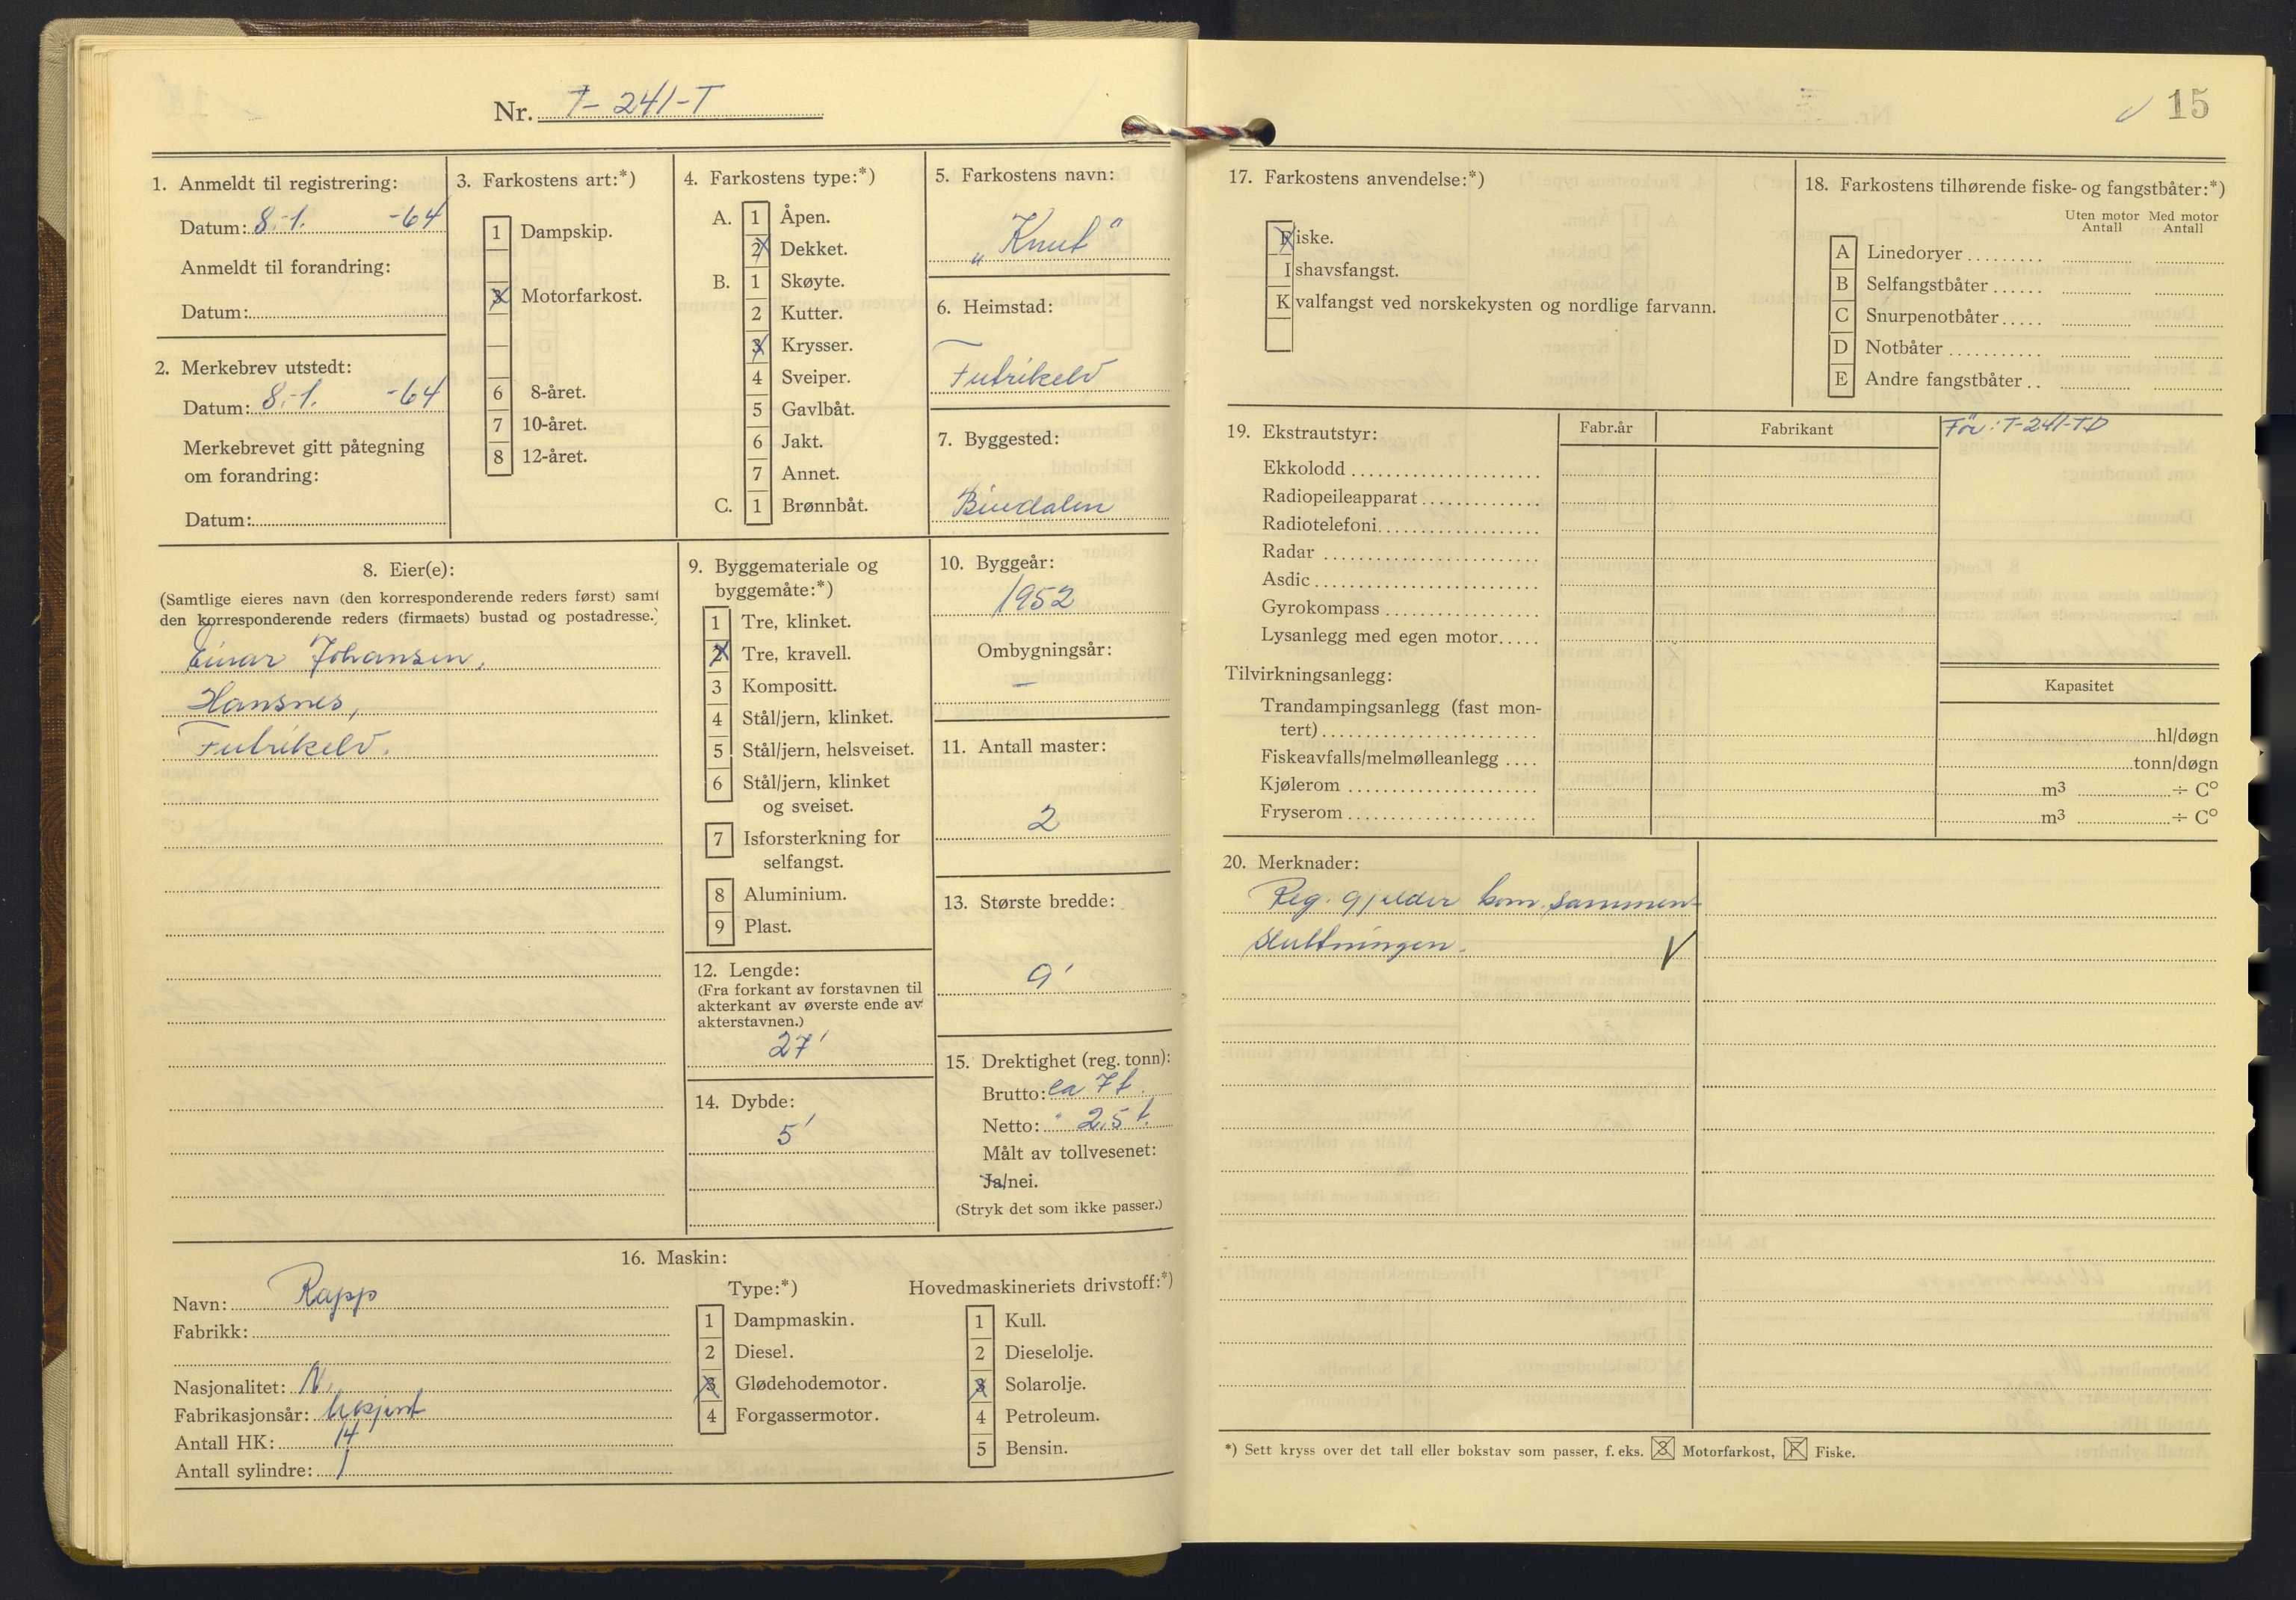 Nr. T-241-T
1. Anmeldt til registrering:
Datum: 8.-1. -64
Anmeldt til forandring:
Datum:
2. Merkebrev utstedt:
Datum: 8.-1. -64
Merkebrevet gitt påtegning
om forandring:
Datum:
3. Farkostens art:*)
1 Dampskip.
3 Motorfarkost.
6 8-året.
7 10-året.
8 12-året.
4. Farkostens type:*)
A. 1 Åpen.
2 Dekket.
B. 1 Skøyte.
2 Kutter.
3 Krysser.
4 Sveiper.
5 Gavlbåt.
6 Jakt.
7 Annet.
C. 1 Brønnbåt.
5. Farkostens navn:
„Knut"
6. Heimstad:
Futrikelv
7. Byggested:
Bindalen
8. Eier(e):
(Samtlige eieres navn (den korresponderende reders først) samt
den korresponderende reders (firmaets) bustad og postadresse.)
Einar Johansen,
Hansnes,
Futrikelv.
9. Byggemateriale og
byggemåte:*)
1 Tre, klinket.
2 Tre, kravell.
3 Kompositt.
4 Stål/jern, klinket.
5 Stål/jern, helsveiset.
6 Stål/jern, klinket
og sveiset.
7 Isforsterkning for
selfangst.
8 Aluminium.
9 Plast.
10. Byggeår:
1952
Ombygningsår:
—
11. Antall master:
2
12. Lengde:
(Fra forkant av forstavnen til
akterkant av øverste ende av
akterstavnen.)
27'
13. Største bredde:
9'
14. Dybde:
5'
15. Drektighet (reg. tonn):
Brutto: ca 7 t.
Netto: " 2,5 t.
Målt av tollvesenet:
Ja/nei.
(Stryk det som ikke passer.)
16. Maskin:
Navn: Rapp
Fabrikk:
Nasjonalitet: N.
Fabrikasjonsår: ukjent
Antall HK: 14
Antall sylindre: 1
Type:*)
1 Dampmaskin.
2 Diesel.
3 Glødehodemotor.
4 Forgassermotor.
Hovedmaskineriets drivstoff:*)
1 Kull.
2 Dieselolje.
3 Solarolje.
4 Petroleum.
5 Bensin.
15
17. Farkostens anvendelse:*)
Fiske.
Ishavsfangst.
Kvalfangst ved norskekysten og nordlige farvann.
18. Farkostens tilhørende fiske- og fangstbåter:*)
Uten motor Med motor
Antall Antall
A Linedoryer
B Selfangstbåter
C Snurpenotbåter
D Notbåter
E Andre fangstbåter
19. Ekstrautstyr:
Fabr.år
Fabrikant
Før: T-241-TD
Ekkolodd
Radiopeileapparat
Radiotelefoni
Radar
Asdic
Gyrokompass
Lysanlegg med egen motor
Tilvirkningsanlegg:
Kapasitet
Trandampingsanlegg (fast mon-
tert) hl/døgn
Fiskeavfalls/melmølleanlegg tonn/døgn
Kjølerom m3 ÷ C°
Fryserom m3 ÷ C°
20. Merknader:
Reg. gjelder kom. sammen-
slutningen.
*) Sett kryss over det tall eller bokstav som passer, f. eks. 3 Motorfarkost, F Fiske.